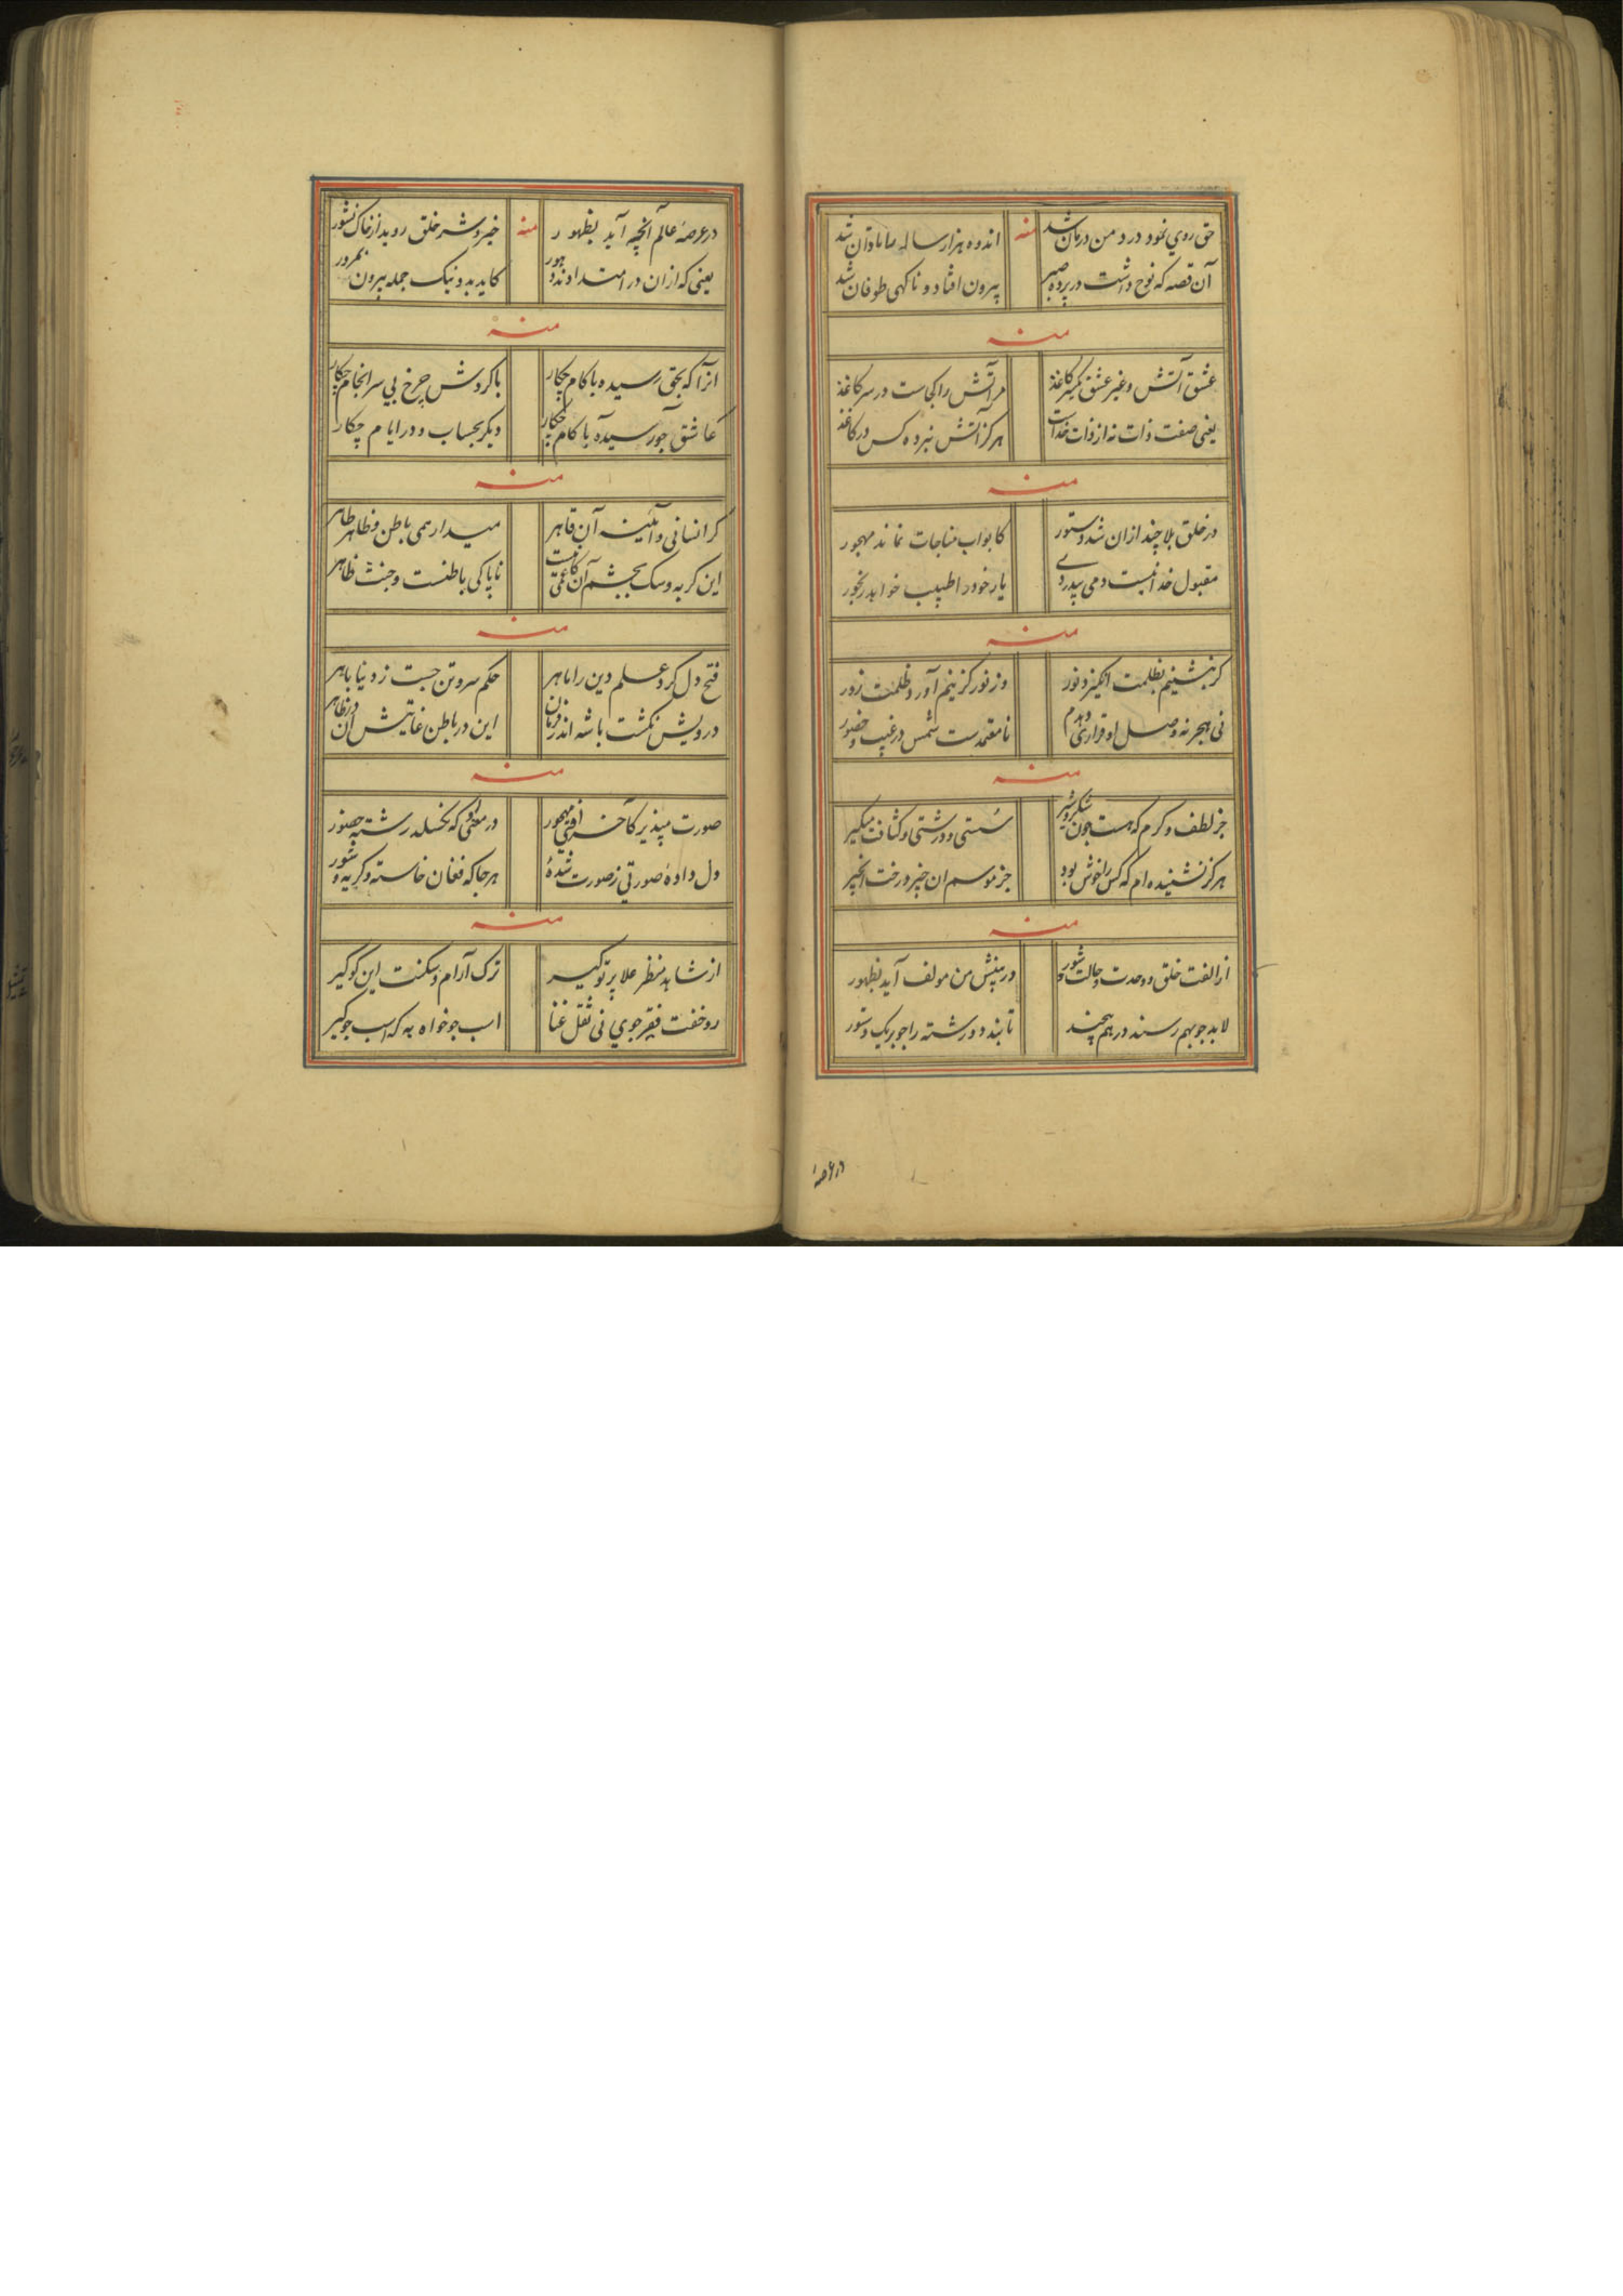 حق روي نمود درد من درمان شد
منه
اندوه هزار ساله ما تاوان شد
آن قصه که نوح داشت در پرده صبر
بیرون افتاد و ناکهی طوفان شد
منه
عشق آتش و غیر عشق کمیر کاغذ
مر آتش را کجاست در سر کاغذ
یعنی صفت ذات نه از ذات خداست
هرکز آتش نبرده کس در کاغذ
منه
در خلق بلا چند ازان شد دستور
کابواب مناجات نماند مهجور
مقبول خدا نیست دمی بیدردے
یار خود را طبیب خواهد رنجور
منه
کر بنشینم بظلمت انکیزد نور
وز نور کزینم آورد ظلمت زور
نی هجر نه وصل او قراری دهدم
نامعتمدست شمس در غیب و حضور
منه
جز لطف و کرم که هست چون شکر و شیر
سستی و درشتی و کثافت میکیر
هرکز نشنیده ام که کس را خوش بود
جز موسم ان خیر درخت انجیر
منه
از الفت خلق و وحدت و حالت شور
در بینش من مولف آید بظهور
لابد چو بهم رسند در هم پیچند
تابند دو رشته را چو بر یک دستور
در عرصهٔ
در عرصهٔ عالم آنچه آید بظهور
منه
خیر و شر خلق روید از خاک نشور
یعنی که ازان در امتداد ند دهور
کاید بد و نیک جمله بیرون بمرور
منه
انرا که بحق رسیده با کام چکار
با کردش چرخ بی سرانجام چکار
عاشق چو رسیده با کام چکار
دیکر بحساب و در ایام چکار
منه
کر انسانی و آئینه آن قاهر
میدار همی باطن و ظاهر طاهر
این کربه و سک بچشم آن کاعمی
ناپاکی باطنست و جنت ظاهر
منه
فتح دل کرد علم دین را ماهر
حکم سر و تن جست ز دنیا باهر
درویش نکشت باشه اندر فرمان
این در باطن غایتش آن در ظاهر
منه
صورت مپذیر کآخر افتی مهجور
در معنی او که نکسلد رشته حضور
دل دادهٔ صورتی ز صورت شدهٔ
هرجا که فغان خاسته و کریه و شور
منه
از شاهد منظر علا پرتو کیر
ترک آرام و سکنت این کو کیر
رو خفت فقر جوي نی ثقل غنا
اسب جو خواه به که اسب جو کیر